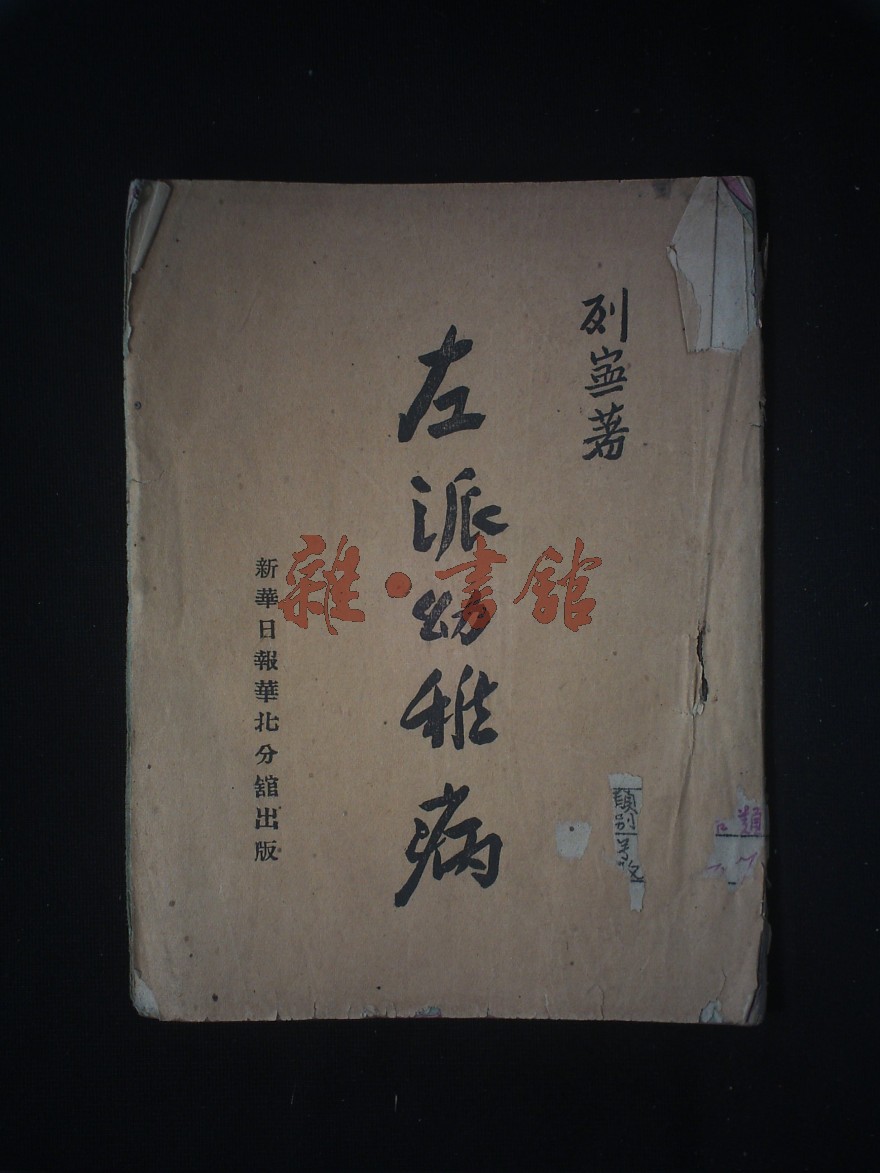 列寧著
左派幼稚病
新華日報華北分館出版
雜·書館
類別
類